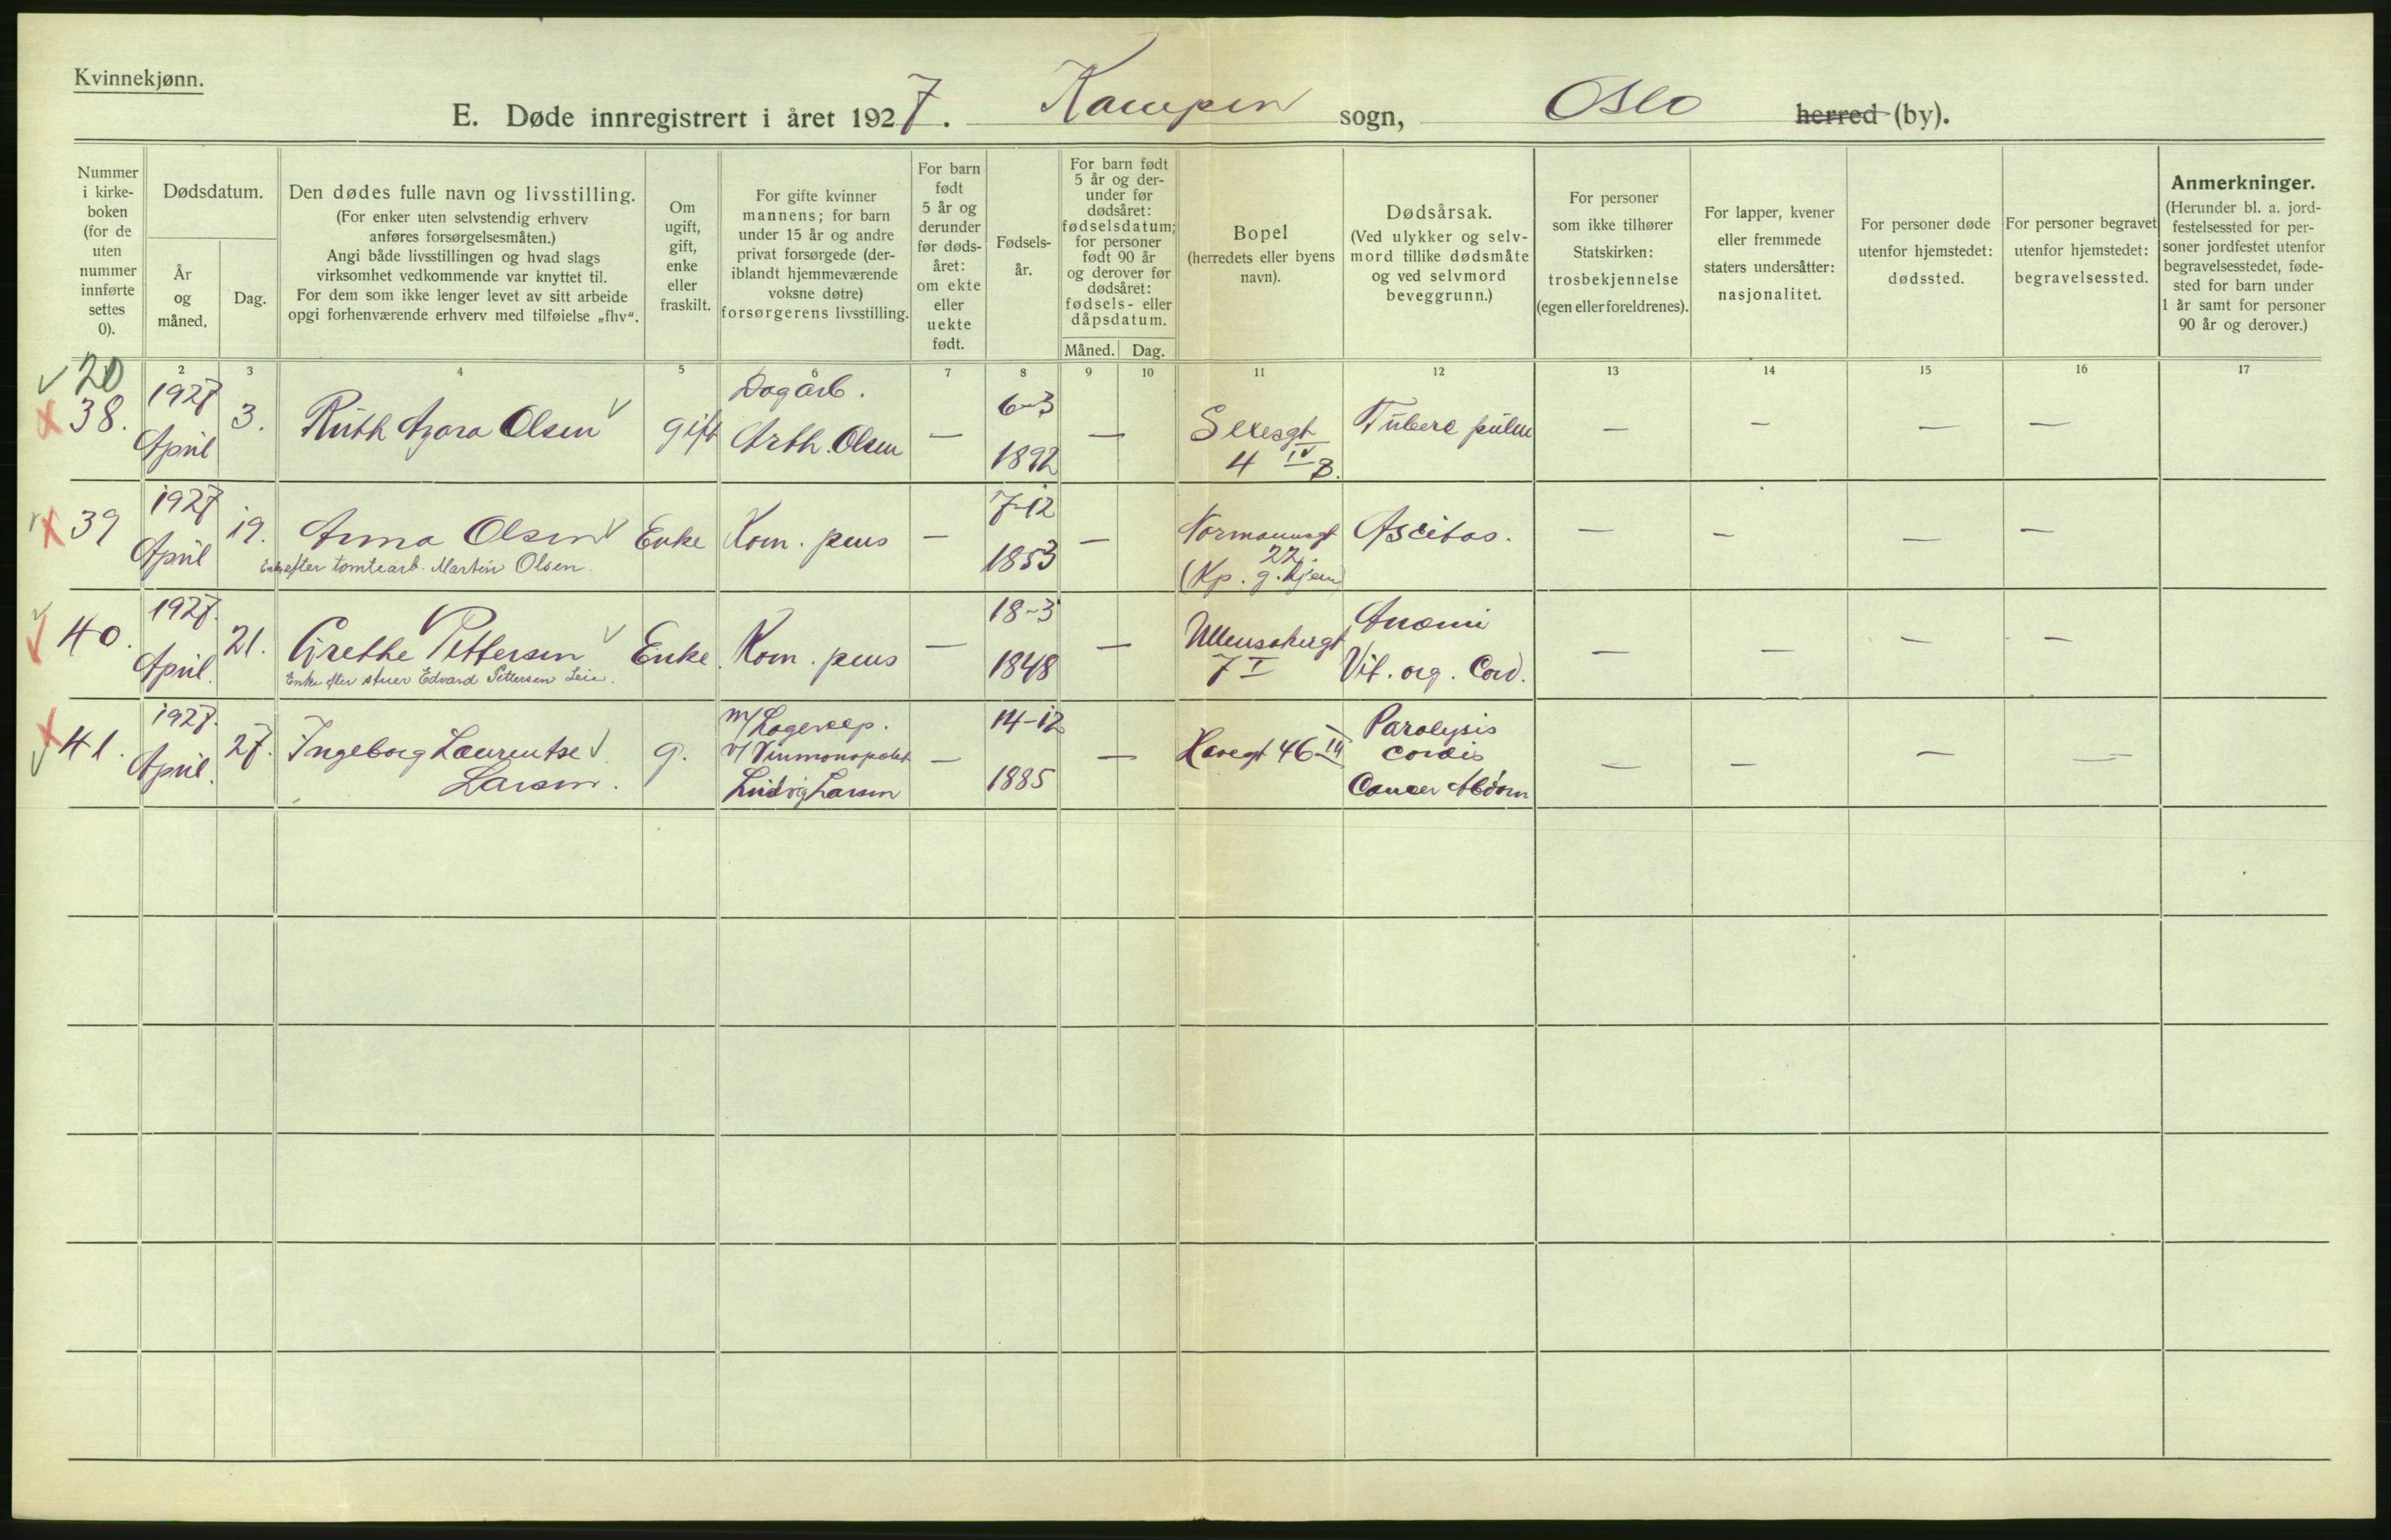 Kvinnekjønn.
E. Døde innregistrert i året 1927. Kampen sogn, Oslo herred (by).
Nummer
i kirke-
boken
(for de
uten
nummer
innførte
settes
0).
Dødsdatum.
År
og
måned.
Dag.
Den dødes fulle navn og livsstilling.
(For enker uten selvstendig erhverv
anføres forsørgelsesmåten.)
Angi både livsstillingen og hvad slags
virksomhet vedkommende var knyttet til.
For dem som ikke lenger levet av sitt arbeide
opgi forhenværende erhverv med tilføielse „fhv“.
Om
ugift,
gift,
enke
eller
fraskilt.
For gifte kvinner
mannens; for barn
under 15 år og andre
privat forsørgede (der-
iblandt hjemmeværende
voksne døtre)
forsørgerens livsstilling.
For barn
født
5 år og
derunder
før døds-
året:
om ekte
eller
uekte
født.
Fødsels-
år.
For barn født
5 år og der-
under før
dødsåret:
fødselsdatum;
for personer
født 90 år
og derover før
dødsåret:
fødsels- eller
dåpsdatum.
Måned. Dag.
Bopel
(herredets eller byens
navn).
Dødsårsak.
(Ved ulykker og selv-
mord tillike dødsmåte
og ved selvmord
beveggrunn.)
For personer
som ikke tilhører
Statskirken:
trosbekjennelse
(egen eller foreldrenes).
For lapper, kvener
eller fremmede
staters undersåtter:
nasjonalitet.
For personer døde
utenfor hjemstedet:
dødssted.
For personer begravet
utenfor hjemstedet:
begravelsessted.
Anmerkninger.
(Herunder bl. a. jord-
festelsessted for per-
soner jordfestet utenfor
begravelsesstedet, føde-
sted for barn under
1 år samt for personer
90 år og derover.)
2 3 4 5 6 7 8 9 10 11 12 13 14 15 16 17
20
38.
1927
April
3.
Ruth Azora Olsen
gift
Dagarb.
Arth. Olsen
—
6-3
1892
—
4 IV B.
Tuberc pulm
— — — —
39
1927
April
19.
Anna Olsen
Enke efter tomtearb. Martin Olsen.
Enke
Kom. pens
—
7-12
1853
—
Normannsgt
22.
(Kp. g. hjem)
Ascites.
— — — —
40.
1927.
April.
21.
Grethe Pettersen
Enke efter stuer Edvard Pettersen
Enke
Kom. pens
—
18-3
1848
—
Ullensakergt
7 I
Anæmi
Vit. org. Cord.
— — — —
41.
1927.
April.
27.
Ingeborg Laurentse
Larsen.
g.
m/Lagereksp.
v/Vinmonopolet
Ludvig Larsen
—
14-12
1885
—
Havegt 46 III
Paralysis
cordis
Cancer Abdom
— — — —